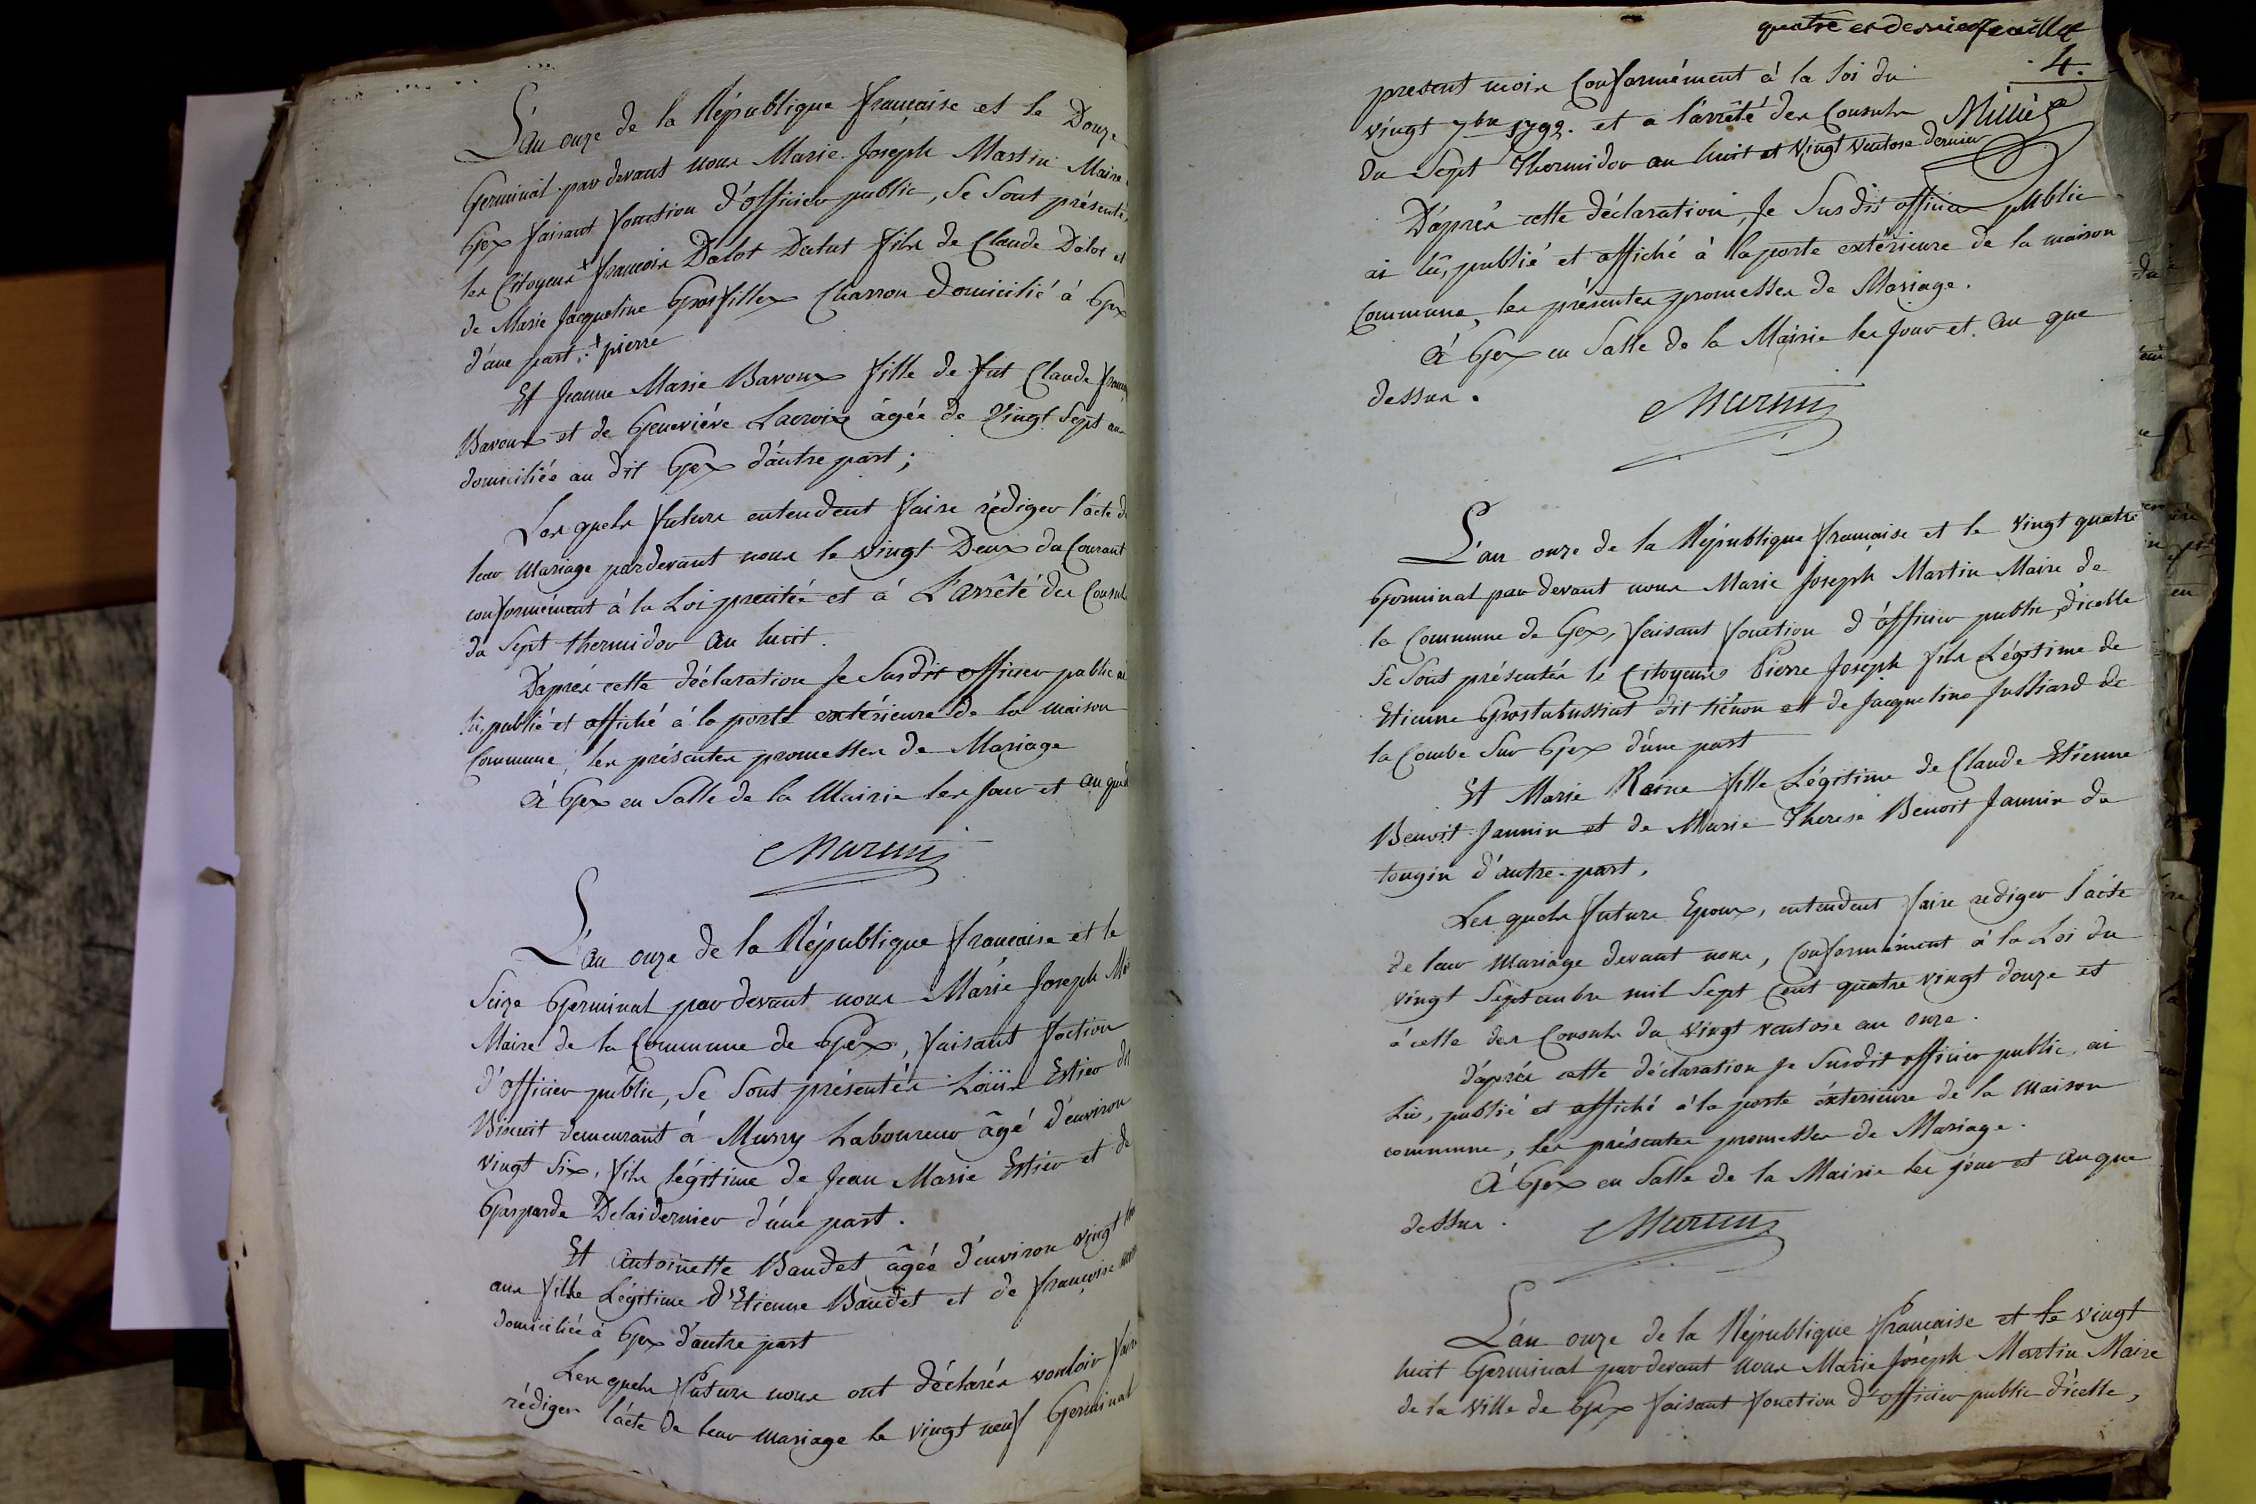 L'an onze de la République française et le Douze
Germinal par devant nous Marie Joseph Martin Maire
Gex faisant fonction d'officier public, se sont présentés
les Citoyens + françois Dalot Dutut fils de Claude Dalot et
de Marie Jacqueline Grosfillex Charron domicilié à Gex
d'une part; + pierre
Et Jeanne Marie Bavoux fille de fut Claude
Bavoux et de Geneviéve Lacroix âgée de Vingt Sept ans
domiciliée au dit Gex d'autre part;
Les quels futurs entendent faire rédiger l'acte de
leur Mariage pardevant nous le vingt Deux du Courant
conformément à la Loi précitée et à L'Arrêté des Consuls
du Sept thermidor an huit.
D'après cette déclaration Je Susdit officier public ai
lu, publié et affiché à la porte extérieure de la maison
Commune, les présentes promesses de Mariage
à Gex en Salle de la Mairie les Jour et an que
Martin
L'an onze de la République française et le
Seize Germinal par devant nous Marie Joseph
Maire de la Commune de Gex, faisant faction
d'officier public, se sont présentés Loüis Estier dit
Biscuit demeurant à Murry Laboureur âgé d'environ
vingt Six, fils légitime de Jean Marie Estier et de
Gasparde Delaidernier d'une part.
Et Antoinette Baudet âgée d'environ vingt
ans fille Légitime d'Etienne Baudet et de françoise
domiciliée à Gex d'autre part
Les quels futurs nous ont déclarés vouloir faire
rédiger l'acte de leur mariage le vingt neuf Germinal
quatre et dernier feuillet
4.
Milliet
present mois Conformément à la Loi du
vingt 7bre 1792. et a l'arrêté des Consuls
du Sept Thermidor an huit et Vingt Ventose dernier
D'après cette déclaration, Je Susdit officier public
ai lû, publié et affiché à la porte extérieure de la maison
Commune, les présentes promesses de Mariage.
à Gex en Salle de la Mairie les Jour et An que
dessus.
Martin
L'an onze de la République française et le vingt quatre
Germinal par devant nous Marie Joseph Martin Maire de
la Commune de Gex, faisant fonction d'officier public d'icelle
se sont présentés le Citoyens Pierre Joseph fils Légitime de
Etienne Grostabussiat dit tiénon et de Jacqueline Julliard de
la Combe sur Gex d'une part
Et Marie Reine fille Légitime de Claude Etienne
Benoit Jannin et de Marie Therese Benoit Jannin du
tougin d'autre part,
Les quels futurs Epoux, entendent faire rediger l'acte
de leur Mariage devant nous, conformément à la Loi du
vingt Septembre mil Sept Cent quatre vingt douze et
à celle des Consuls du vingt ventose an onze.
d'après cette déclaration Je Susdit officier public, ai
Lu, publié et affiché à la porte éxterieure de la Maison
commune, les présentes promesses de Mariage.
à Gex en Salle de la Mairie les jour et an que
dessus.
Martin
L'an onze de la République française et le vingt
huit Germinal par devant nous Marie Joséph Martin Maire
de la Ville de Gex faisant fonction d'officier public d'icelle,